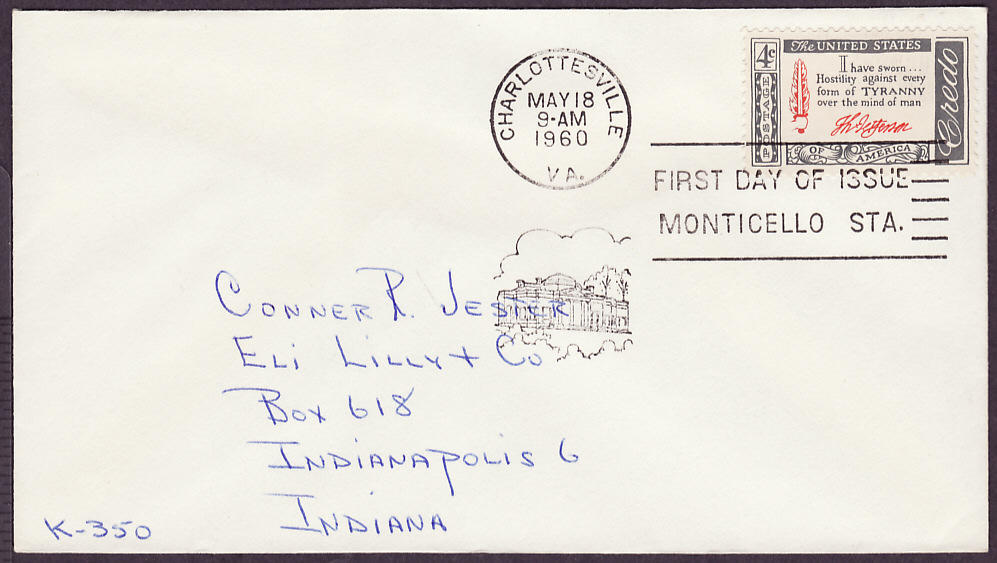 CHARLOTTESVILLE
MAY 18
9-AM
1960
VA.
4c
POSTAGE
The UNITED STATES
I have sworn...
Hostility against every
form of TYRANNY
over the mind of man
Th Jefferson
OF AMERICA
Credo
FIRST DAY OF ISSUE
MONTICELLO STA.
CONNER R. JESTER
ELI LILLY + CO
BOX 618
INDIANAPOLIS 6
INDIANA
K-350